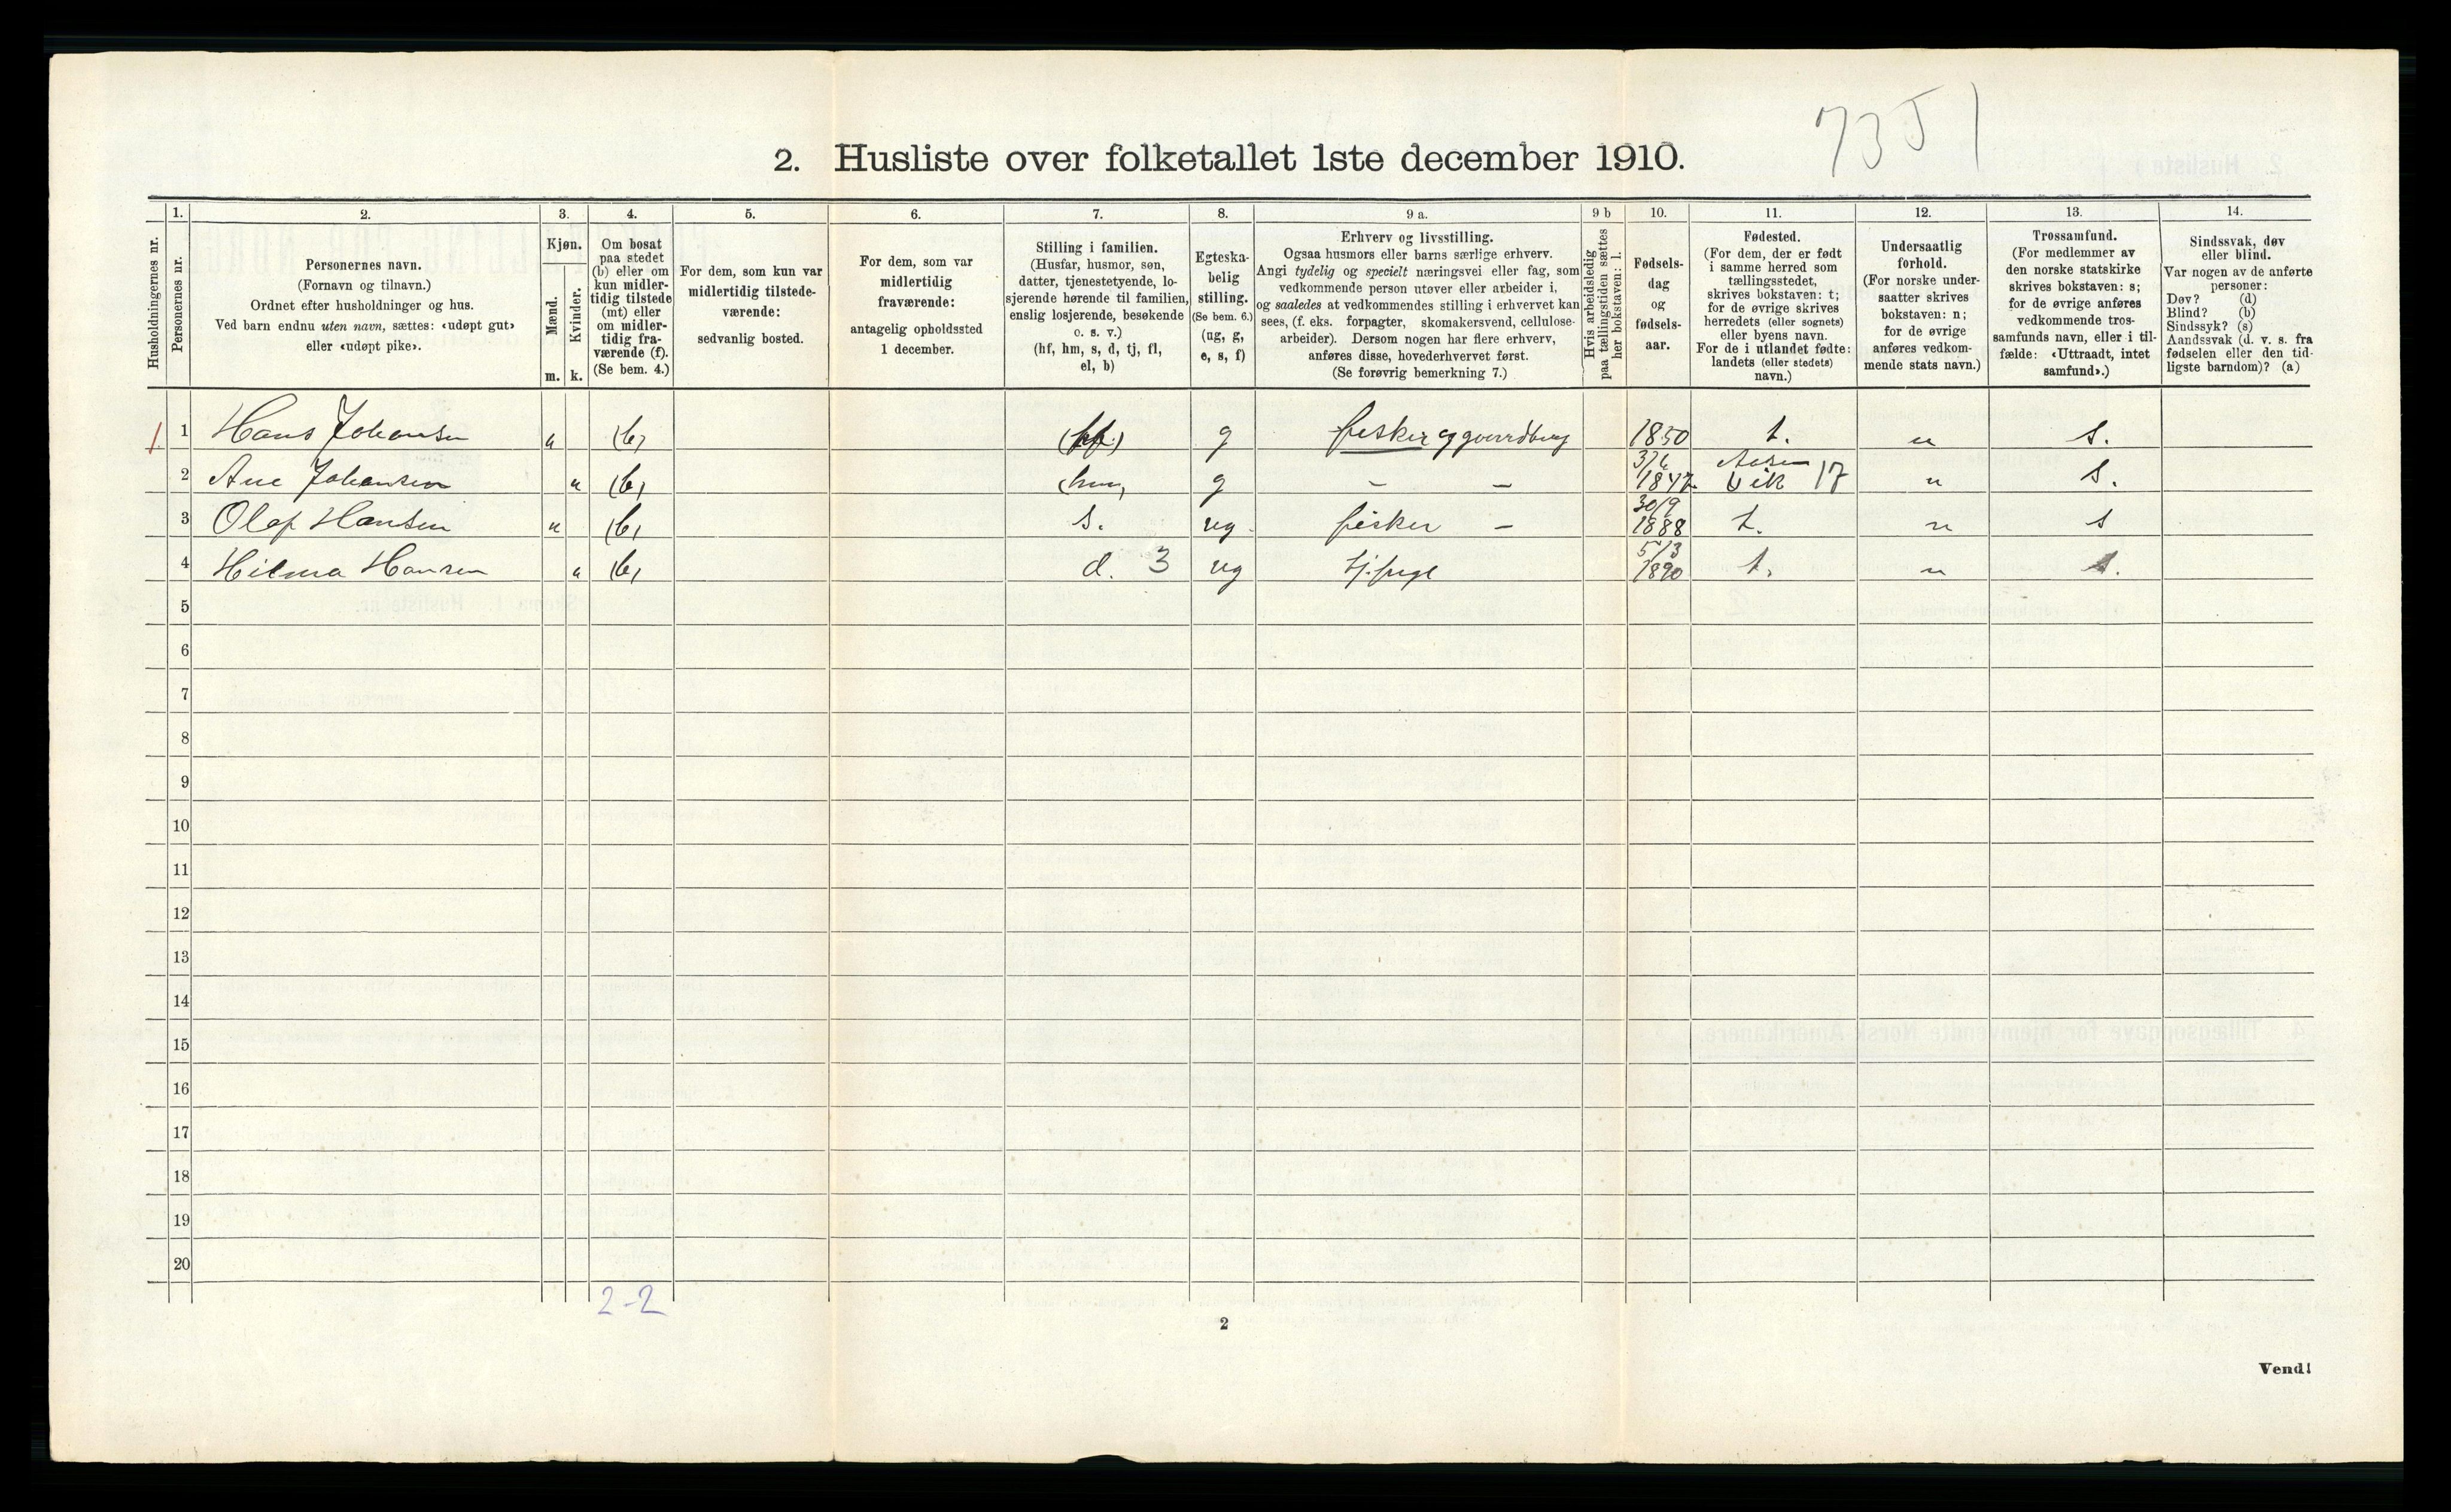 73 J 1
2. Husliste over folketallet 1ste december 1910.
Husholdningernes nr.
1.
Personernes nr.
2.
Personernes navn.
(Fornavn og tilnavn.)
Ordnet efter husholdninger og hus.
Ved barn endnu uten navn, sættes: «udøpt gut»
eller «udøpt pike».
3.
Kjøn.
Mænd.
Kvinder.
m. k.
4.
Om bosat
paa stedet
(b) eller om
kun midler-
tidig tilstede
(mt) eller
om midler-
tidig fra-
værende (f).
(Se bem. 4.)
5.
For dem, som kun var
midlertidig tilstede-
værende:
sedvanlig bosted.
6.
For dem, som var
midlertidig
fraværende:
antagelig opholdssted
1 december.
7.
Stilling i familien.
(Husfar, husmor, søn,
datter, tjenestetyende, lo-
sjerende hørende til familien,
enslig losjerende, besøkende
o. s. v.)
(hf, hm, s, d, tj, fl,
el, b)
8.
Egteska-
belig
stilling.
(Se bem. 6.)
(ug, g,
e, s, f)
9 a.
Erhverv og livsstilling.
Ogsaa husmors eller barns særlige erhverv.
Angi tydelig og specielt næringsvei eller fag, som
vedkommende person utøver eller arbeider i,
og saaledes at vedkommendes stilling i erhvervet kan
sees, (f. eks. forpagter, skomakersvend, cellulose-
arbeider). Dersom nogen har flere erhverv,
anføres disse, hovederhvervet først.
(Se forøvrig bemerkning 7.)
9 b
Hvis arbeidsledig
paa tællingstiden sættes
her bokstaven: l.
10.
Fødsels-
dag
og
fødsels-
aar.
11.
Fødested.
(For dem, der er født
i samme herred som
tællingsstedet,
skrives bokstaven: t;
for de øvrige skrives
herredets (eller sognets)
eller byens navn.
For de i utlandet fødte:
landets (eller stedets)
navn.)
12.
Undersaatlig
forhold.
(For norske under-
saatter skrives
bokstaven: n;
for de øvrige
anføres vedkom-
mende stats navn.)
13.
Trossamfund.
(For medlemmer av
den norske statskirke
skrives bokstaven: s;
for de øvrige anføres
vedkommende tros-
samfunds navn, eller i til-
fælde: «Uttraadt, intet
samfund».)
14.
Sindssvak, døv
eller blind.
Var nogen av de anførte
personer:
Døv? (d)
Blind? (b)
Sindssyk? (s)
Aandssvak (d. v. s. fra
fødselen eller den tid-
ligste barndom)? (a)
1 1 Hans Johansen (b) (hf.) g fisker og 1850 t. n s.
2 Ane Johansen (b) (hm) g - - 1847 Vik 17 n s.
3 Olaf Hansen (b) s. ug fisker - 30/9 1888 t. n s
4 Hilma Hansen (b) d. 3 ug 5/3 1890 t. n s.
5
6
7
8
9
10
11
12
13
14
15
16
17
18
19
20
2-2
2
Vend!